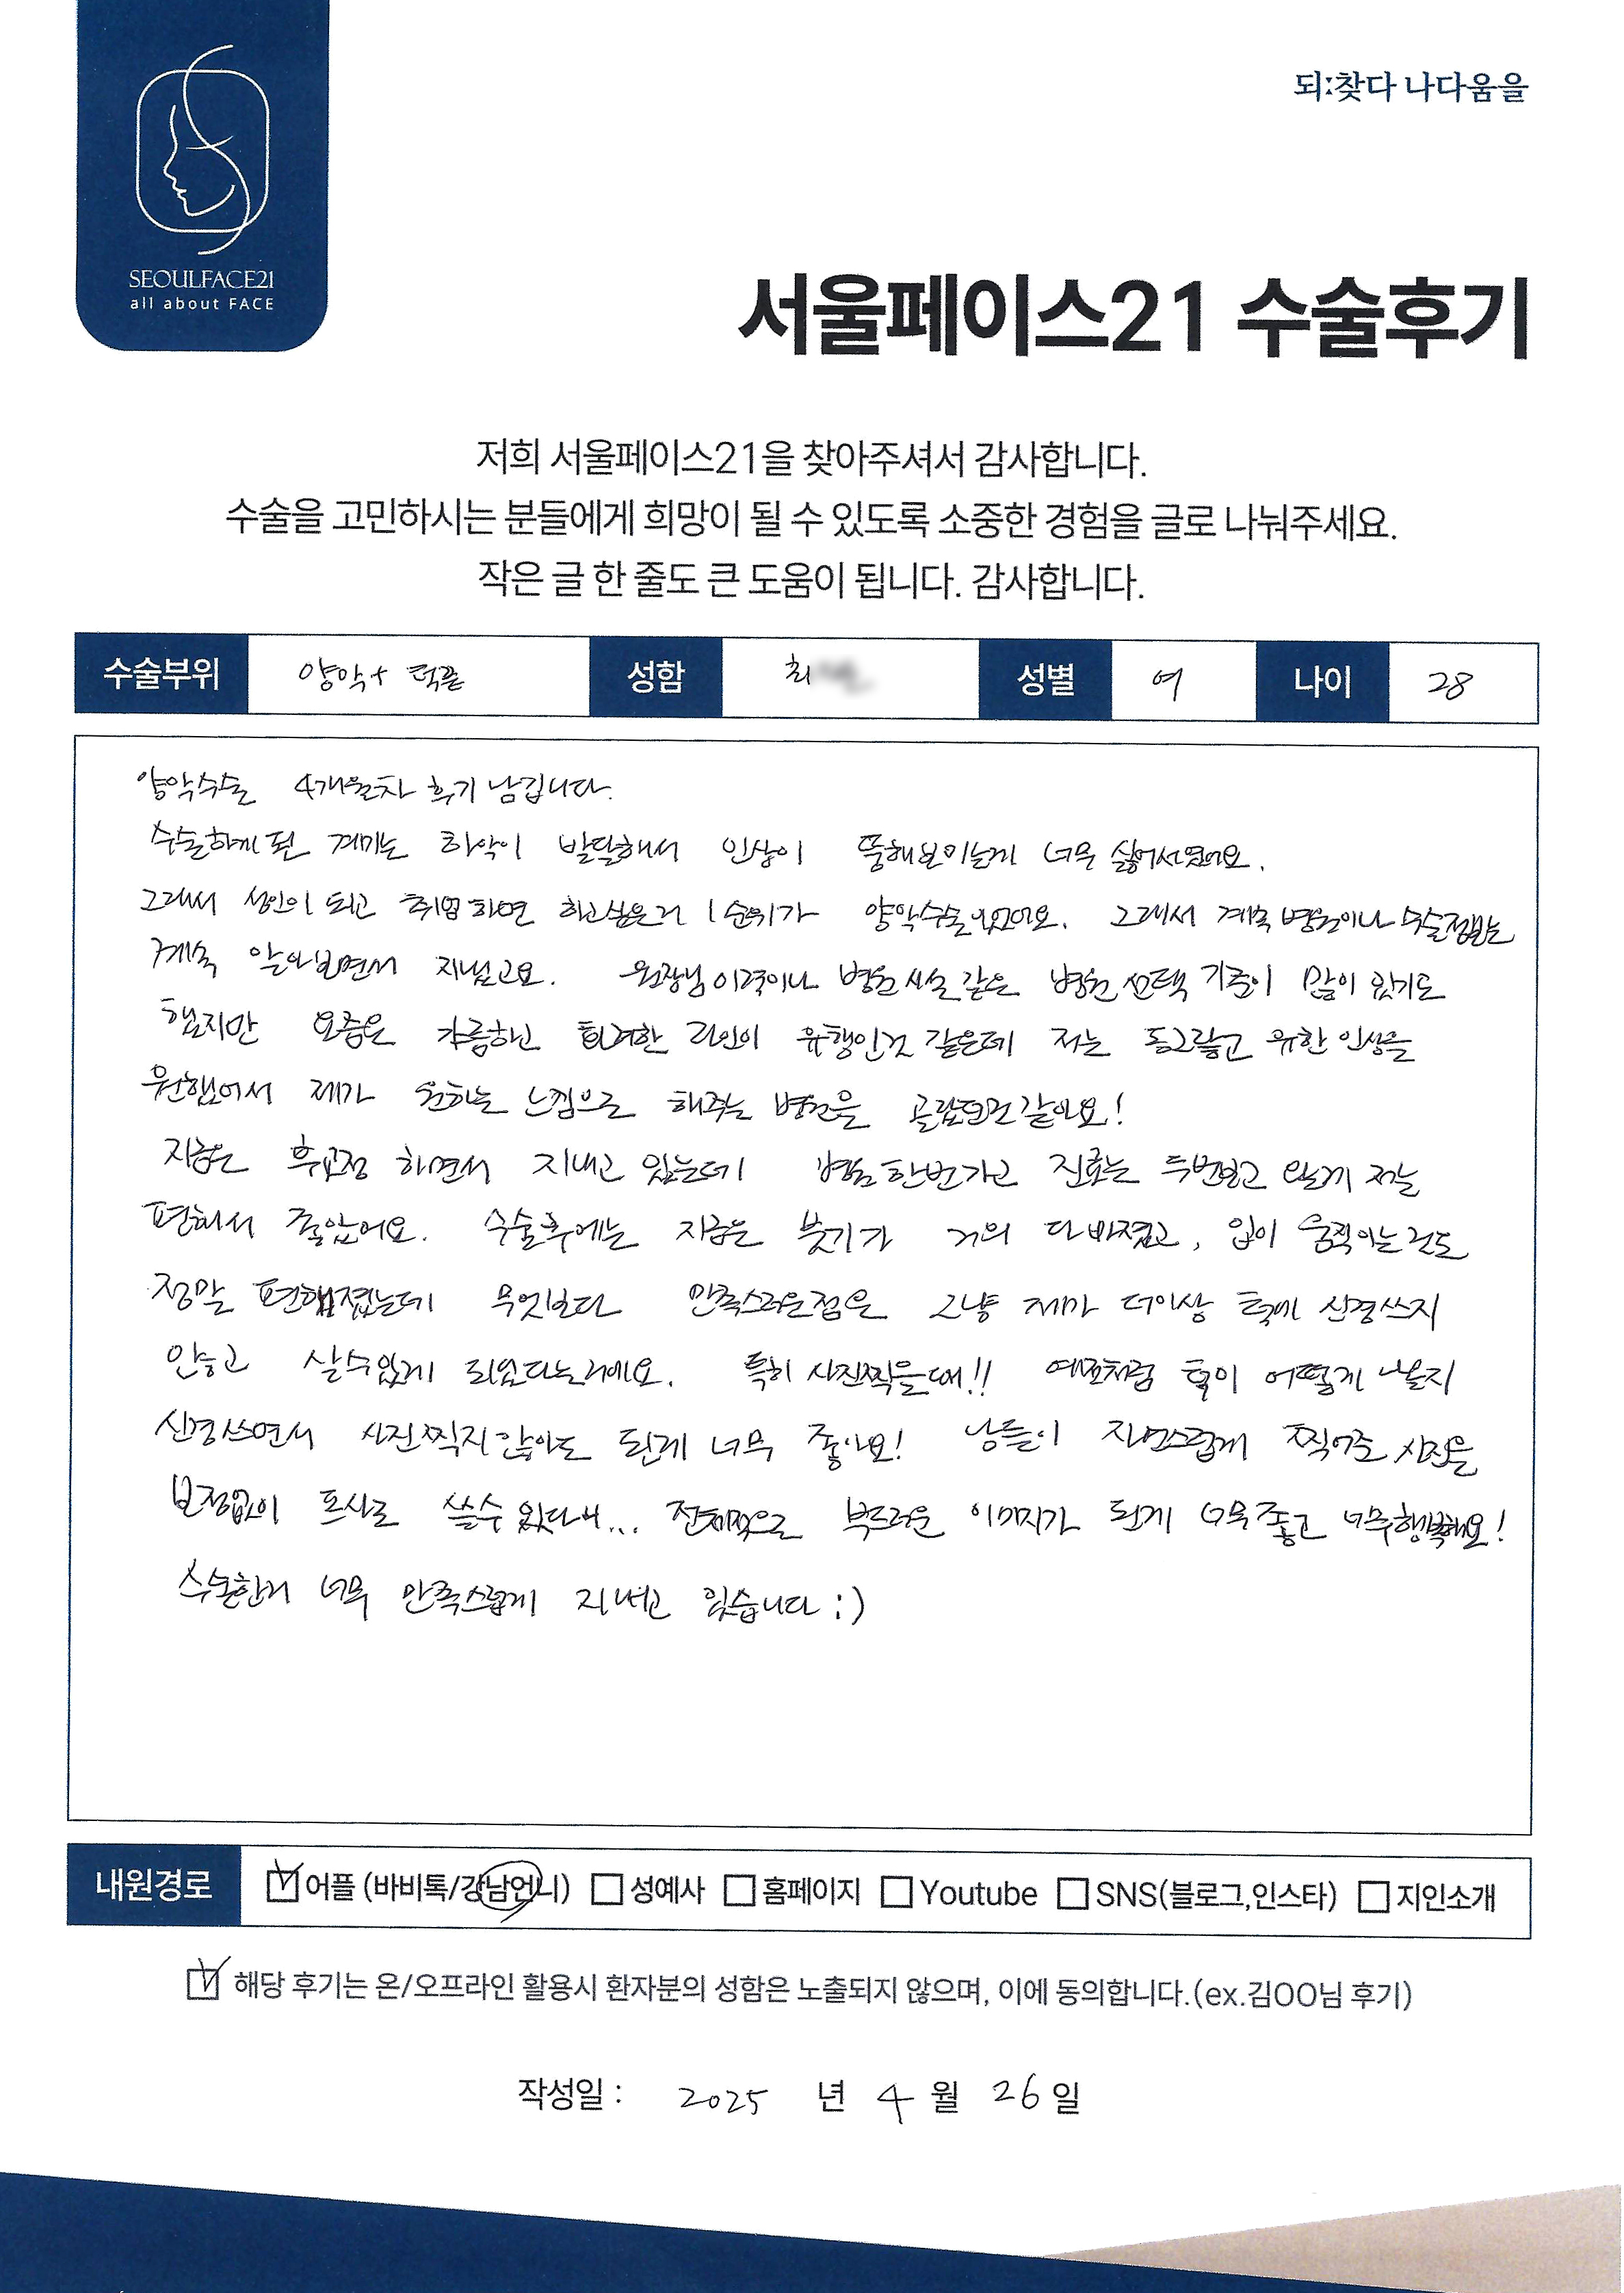 되:찾다 나다움을
SEOULFACE21
all about FACE
서울페이스21 수술후기
저희 서울페이스21을 찾아주셔서 감사합니다.
수술을 고민하시는 분들에게 희망이 될 수 있도록 소중한 경험을 글로 나눠주세요.
작은 글 한 줄도 큰 도움이 됩니다. 감사합니다.
수술부위 양악+턱끝 성함 최 성별 여 나이 28
양악수술 4개월차 후기 남깁니다.
수술하게 된 계기는 하악이 발달해서 인상이 뚱해보이는게 너무 싫어서였어요.
그래서 성인이 되고 취업하면 하고싶은거 1순위가 양악수술이었어요. 그래서 계속 병원이나 수술정보는
계속 알아보면서 지냈고요. 원장님 이력이나 병원 시설 같은 병원 선택 기준이 많이 있기도
했지만 요즘은 갸름하고 화려한 라인이 유행인것 같은데 저는 동그랗고 유한 인상을
원했어서 제가 원하는 느낌으로 해주는 병원을 골랐던것 같아요!
지금은 후교정 하면서 지내고 있는데 병원 한번가고 진료는 두번보고 있는게 저는
편해서 좋았어요. 수술후에는 지금은 붓기가 거의 다 빠졌고, 입이 움직이는 것도
정말 편해졌는데 무엇보다 만족스러운점은 그냥 제가 더이상 턱에 신경쓰지
않고 살수있게 되었다는거예요. 특히 사진찍을때!! 예전처럼 턱이 어떻게 나올지
신경쓰면서 사진찍지 않아도 된게 너무 좋아요! 남들이 자연스럽게 찍어준 사진을
보정없이 프사로 쓸수 있다니... 전체적으로 부드러운 이미지가 된게 너무좋고 너무행복해요!
수술한거 너무 만족스럽게 지내고 있습니다 :)
내원경로 ☑어플 (바비톡/강남언니) ☐성예사 ☐홈페이지 ☐Youtube ☐SNS(블로그,인스타) ☐지인소개
☑ 해당 후기는 온/오프라인 활용시 환자분의 성함은 노출되지 않으며, 이에 동의합니다.(ex.김OO님 후기)
작성일 : 2025 년 4 월 26 일